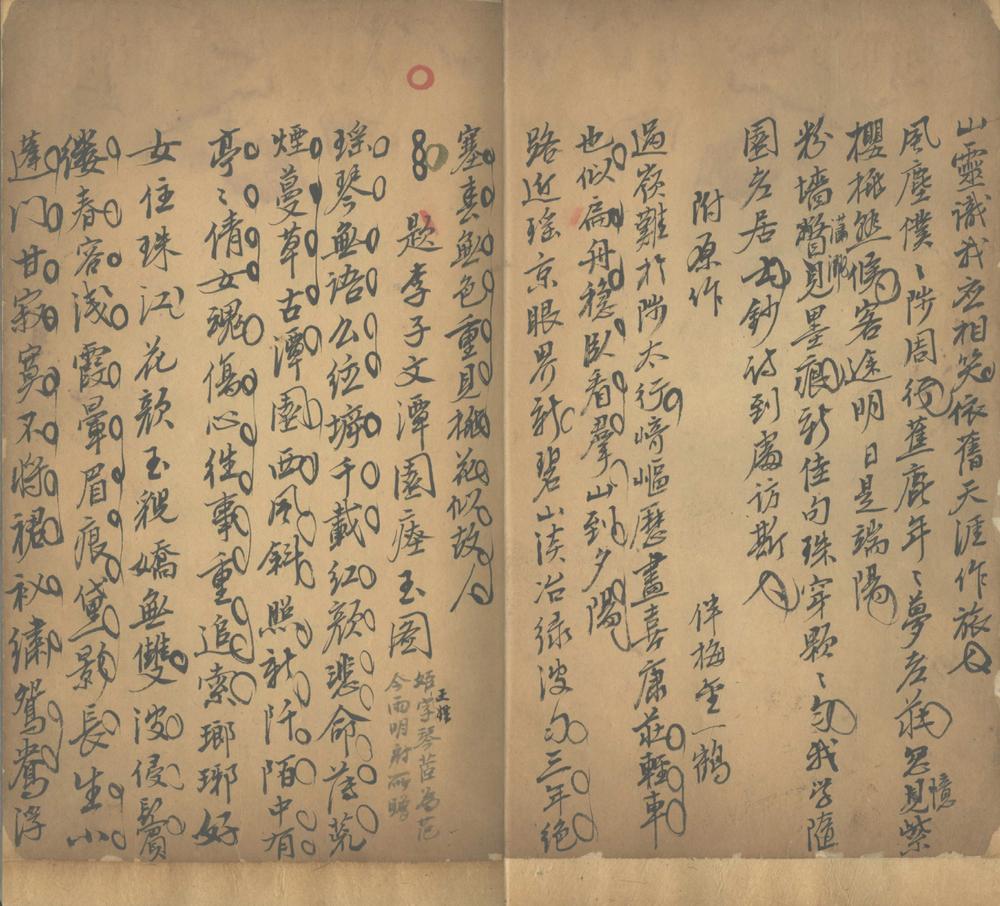 山靈識我應相笑依舊天涯作旅人
風塵僕〻陟周行蕉鹿年〻夢老莊忽見紫
憶
櫻桃熟候客途明日是端陽
粉墻瞥見墨痕新佳句珠穿顆〻勻我學隨
瀟洒
園老居士鈔詩到處訪斯人
附原作
伴梅㐀一鶴
過嶺難於陟太行崎嶇歷盡喜康莊輕車
也似扁舟穩臥看羣山到夕陽
路近瑤京眼界新碧山淡冶綠波勻三年絕
塞春無色重見桃花似故人
題李子文潭園瘞玉圖
今雨明府所聘
瑤琴無語么絃擗千載紅顏悲命薄荒
煙蔓草古潭園西風斜照新阡陌中有
亭〻倩女魂傷心往事重追索瑯琊好
女住珠江花顏玉貌嬌無雙波侵鬢
縷春容淺霞暈眉痕黛影長生小
蓬門甘寂寞不將裙衩繡鴛鴦浮